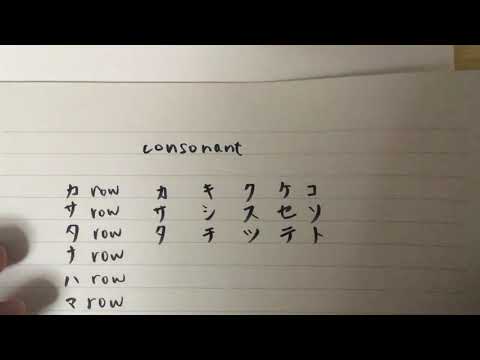 consonant
カ row カ キ ク ケ コ
サ row サ シ ス セ ソ
タ row タ チ ツ テ ト
ナ row
ハ row
マ row